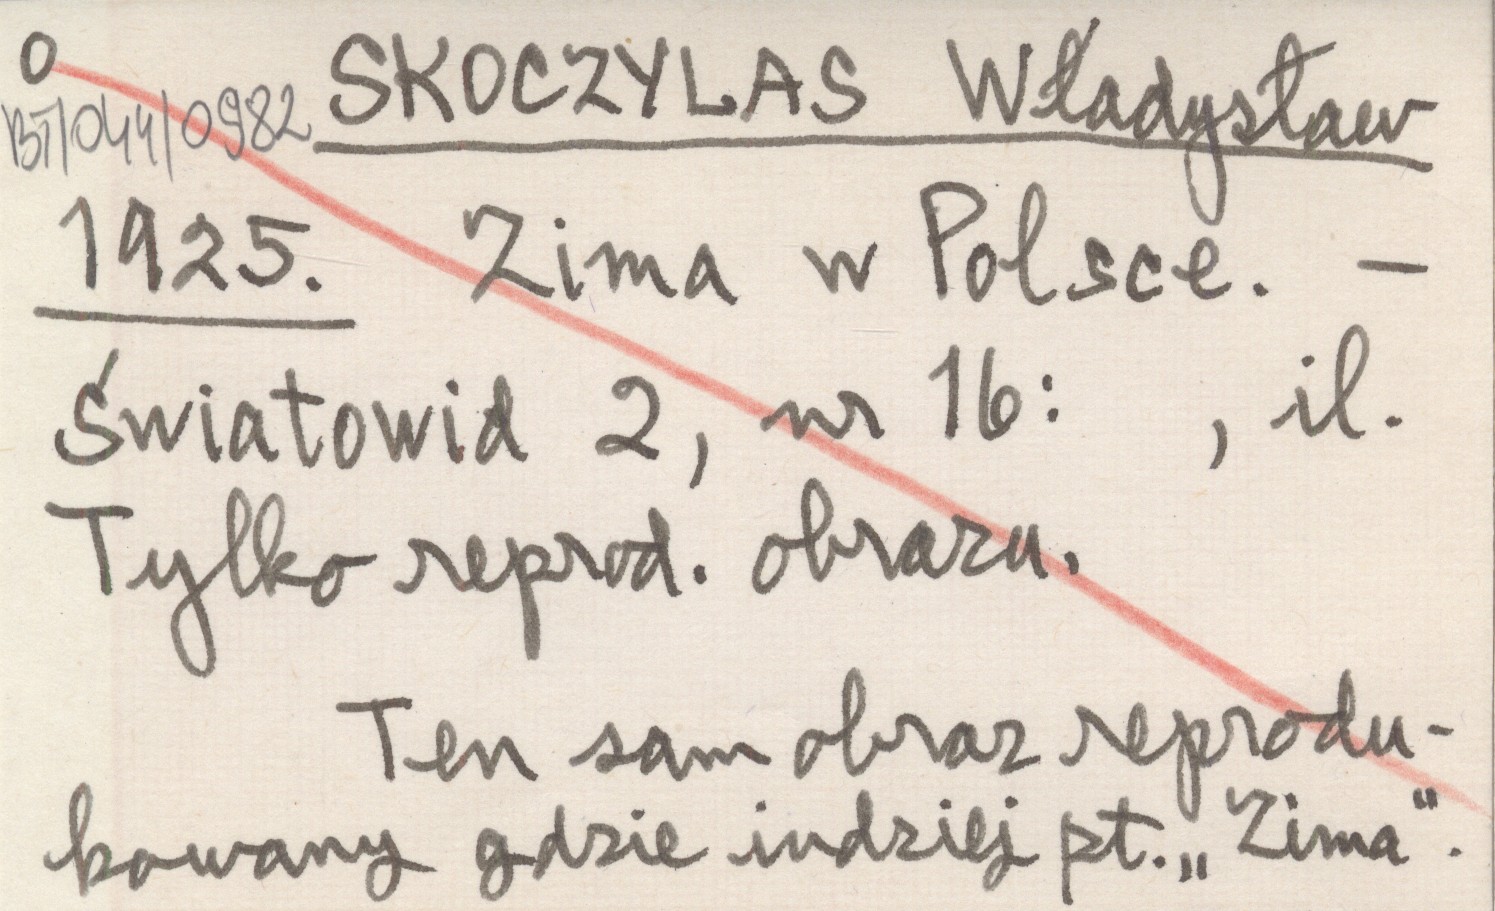 O SKOCZYLAS Władysław
BT/044/0982
1925. Zima w Polsce. –
Światowid 2, nr 16: , il.
Tylko reprod. obrazu.
Ten sam obraz reprodu-
kowany gdzie indziej pt. „Zima".